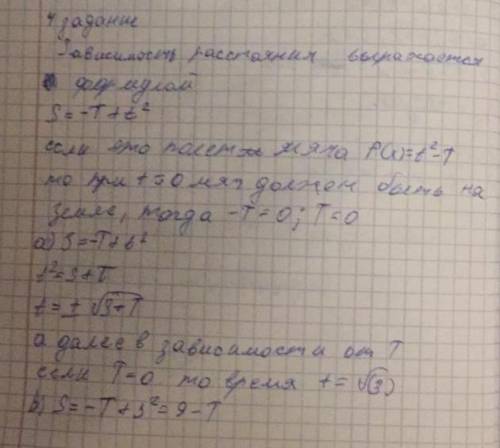 4 задание
Зависимость расстояния выражается
формулой
S = -T + t²
если это полет мяча f(x) = t² - T
то при t = 0 мяч должен быть на
земле, тогда -T = 0; T = 0
a) S = -T + t²
t² = S + T
t = ± √(S+T)
а далее в зависимости от T
если T = 0 то время t = √(3)
b) S = -T + 3² = 9 - T